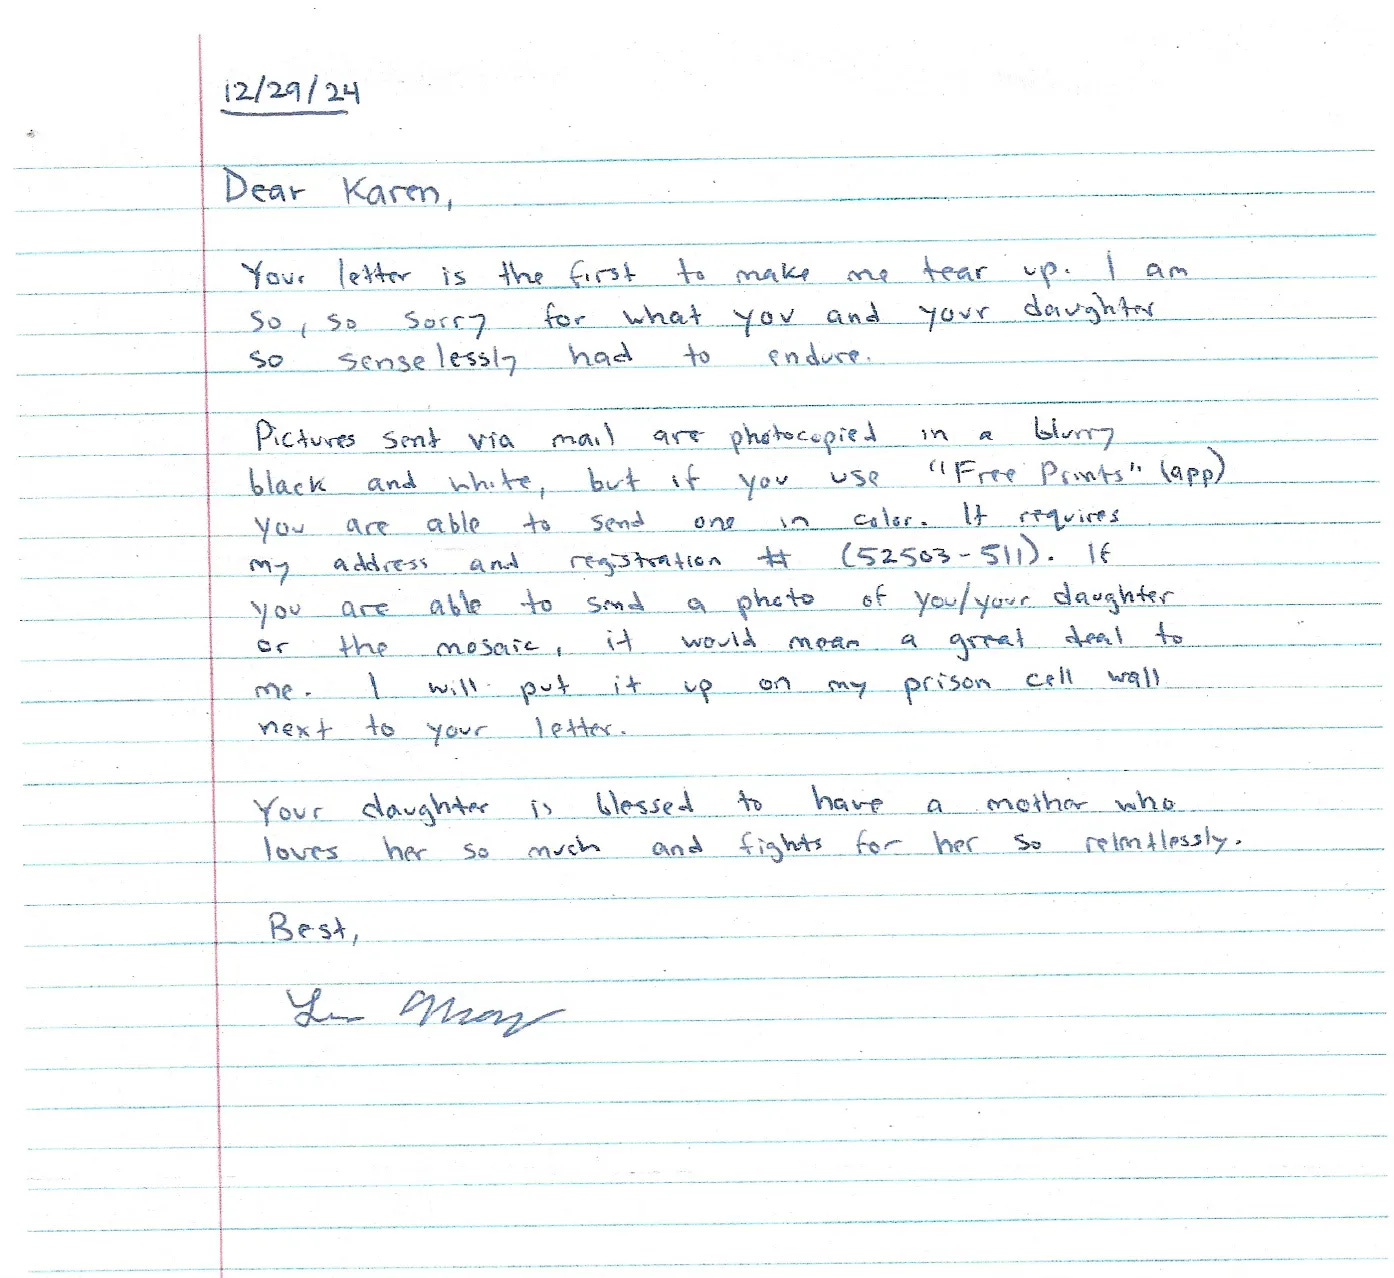 12/29/24
Dear Karen,
Your letter is the first to make me tear up. I am
so, so sorry for what you and your daughter
so senselessly had to endure.
Pictures sent via mail are photocopied in a blurry
black and white, but if you use "Free Prints" (app)
you are able to send one in color. It requires
my address and registration # (52503-511). If
you are able to send a photo of you/your daughter
or the mosaic, it would mean a great deal to
me. I will put it up on my prison cell wall
next to your letter.
Your daughter is blessed to have a mother who
loves her so much and fights for her so relentlessly.
Best,